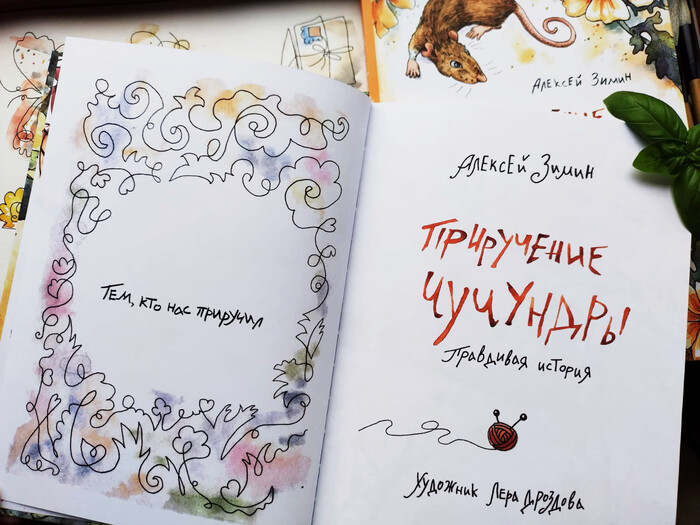 Алексей Зимин
Тем, кто нас приручил
Алексей Зимин
Приручение
Чучундры
Правдивая история
Художник Лера Дроздова